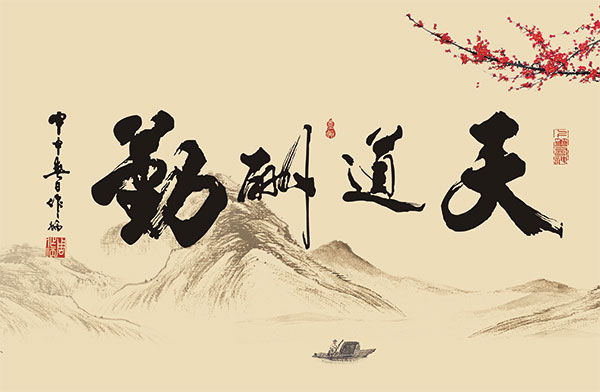 天道酬勤
甲申春日